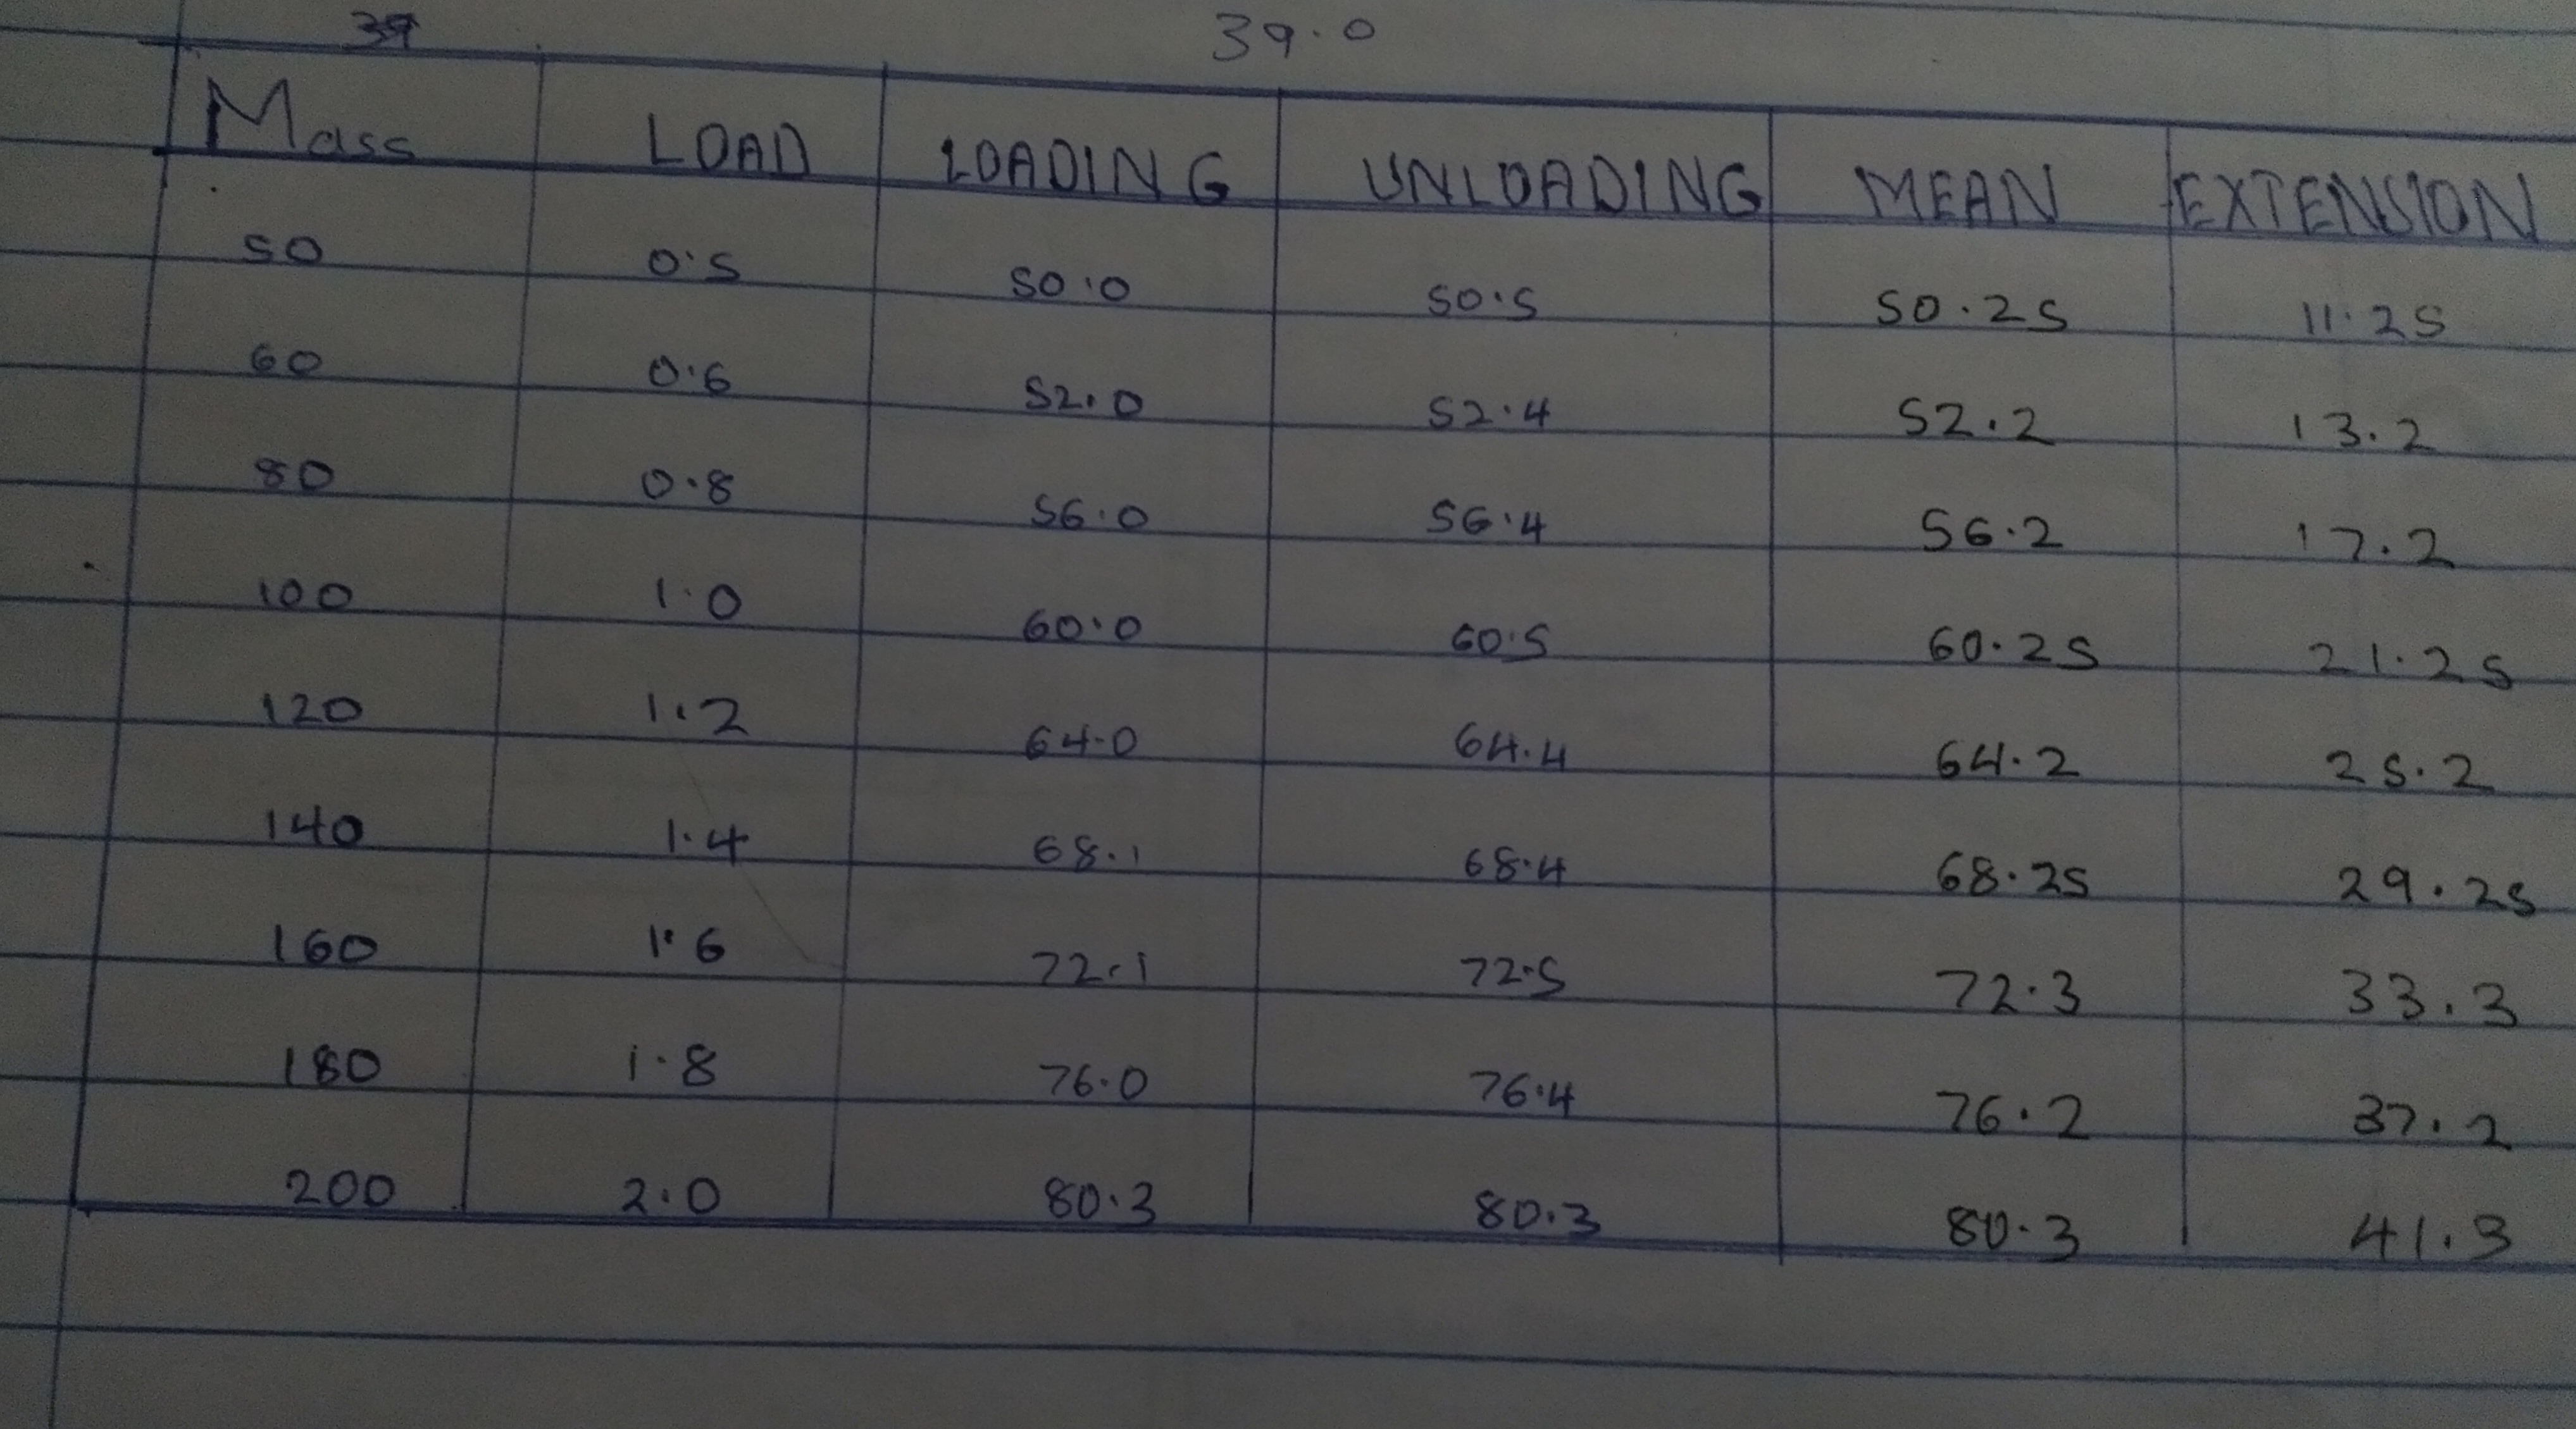 39.0
Mass LOAD LOADING UNLOADING MEAN EXTENSION
50 0.5 50.0 50.5 50.25 11.25
60 0.6 52.0 52.4 52.2 13.2
80 0.8 56.0 56.4 56.2 17.2
100 1.0 60.0 60.5 60.25 21.25
120 1.2 64.0 64.4 64.2 25.2
140 1.4 68.1 68.4 68.25 29.25
160 1.6 72.1 72.5 72.3 33.3
180 1.8 76.0 76.4 76.2 37.2
200 2.0 80.3 80.3 80.3 41.3